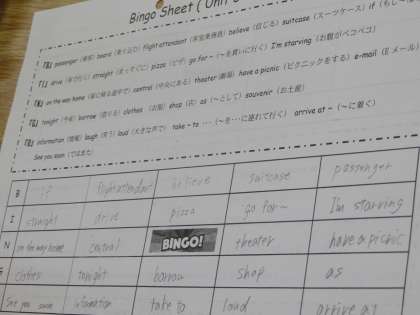 Bingo Sheet ( Unit
「B」 passenger (乗客) board (乗り込む) flight attendant (客室乗務員) believe (信じる) suitcase (スーツケース) if (もし～
「I」 drive (車で行く) straight (まっすぐに) pizza (ピザ) go for ~ (～を買いに行く) I'm starving (お腹がペコペコ)
「N」 on the way home (家に帰る途中で) central (中央にある) theater (劇場) have a picnic (ピクニックをする) e-mail (Eメール)
「G」 tonight (今夜) borrow (借りる) clothes (衣服) shop (店) as (～として) souvenir (お土産)
「O」 information (情報) laugh (笑う) loud (大きな声で) take ~ to … (～を…に連れて行く) arrive at ~ (～に着く)
See you soon (ではまた)
B if flight attendant believe suitcase passenger
I straight drive pizza go for~ I'm starving
N on the way home central BINGO! theater have a picnic
G clothes tonight borrow shop as
See you soon information take to loud arrive at